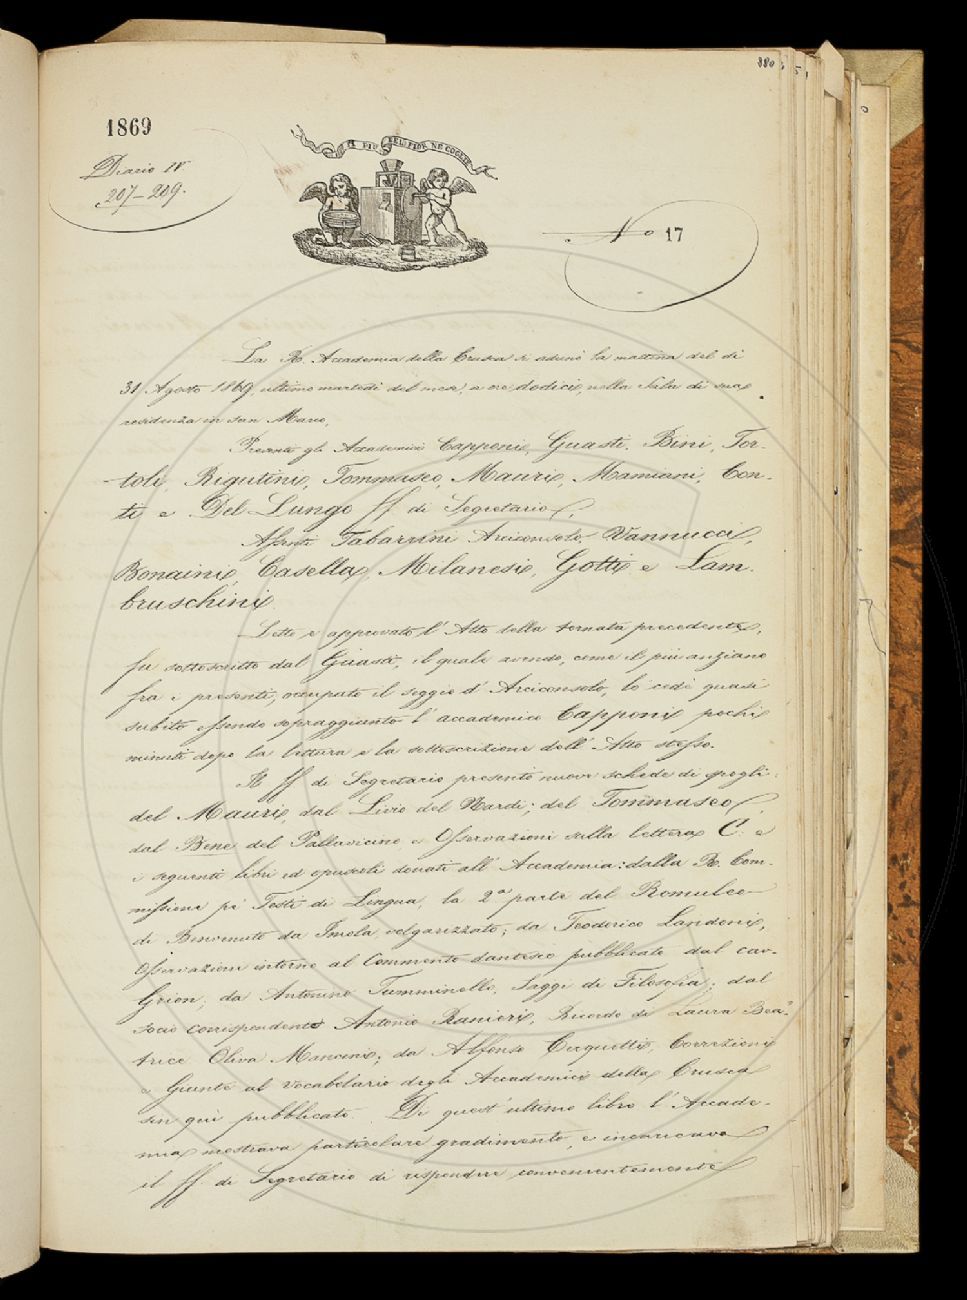 380
1869
Diario IV.
207–209.
IL PIÙ BEL FIOR NE COGLIE
No 17
La R. Accademia della Crusca si adunò la mattina del dì
31 Agosto 1869, ultimo martedì del mese, a ore dodici, nella Sala di sua
residenza in San Marco.
Presenti gli Accademici Capponi, Guasti, Bini, Tor-
toli, Rigutini, Tommaseo, Mauri, Mamiani, Con-
ti e Del Lungo ff. di Segretario.
Assenti Tabarrini Arciconsolo, Vannucci,
Bonaini, Casella, Milanesi, Gotti e Lam-
bruschini.
Letto e approvato l'Atto della tornata precedente,
fu sottoscritto dal Guasti, il quale avendo, come il più anziano
fra i presenti, occupato il seggio d'Arciconsolo, lo cedè quasi
subito essendo sopraggiunto l'accademico Capponi pochi
minuti dopo la lettura e la sottoscrizione dell'Atto stesso.
Il ff. di Segretario presentò nuove schede di spogli:
del Mauri, dal Livio del Nardi; del Tommaseo,
dal Bene del Pallavicino e Osservazioni sulla lettera C. e
i seguenti libri ed opuscoli donati all'Accademia: dalla R. Com-
missione pe' Testi di Lingua, la 2a parte del Romuleo
di Benvenuto da Imola volgarizzato; da Teodorico Landoni,
Osservazioni intorno al Commento dantesco pubblicato dal cav.
Grion; da Antonino Tumminello, Saggi di Filosofia; dal
socio corrispondente Antonio Ranieri, Ricordo di Laura Bea-
trice Oliva Mancini; da Alfonso Cerquetti, Correzioni
e Giunte al Vocabolario degli Accademici della Crusca
sin qui pubblicato. Di quest'ultimo libro l'Accade-
mia mostrava particolare gradimento, e incaricava
il ff. di Segretario di rispondere convenientemente